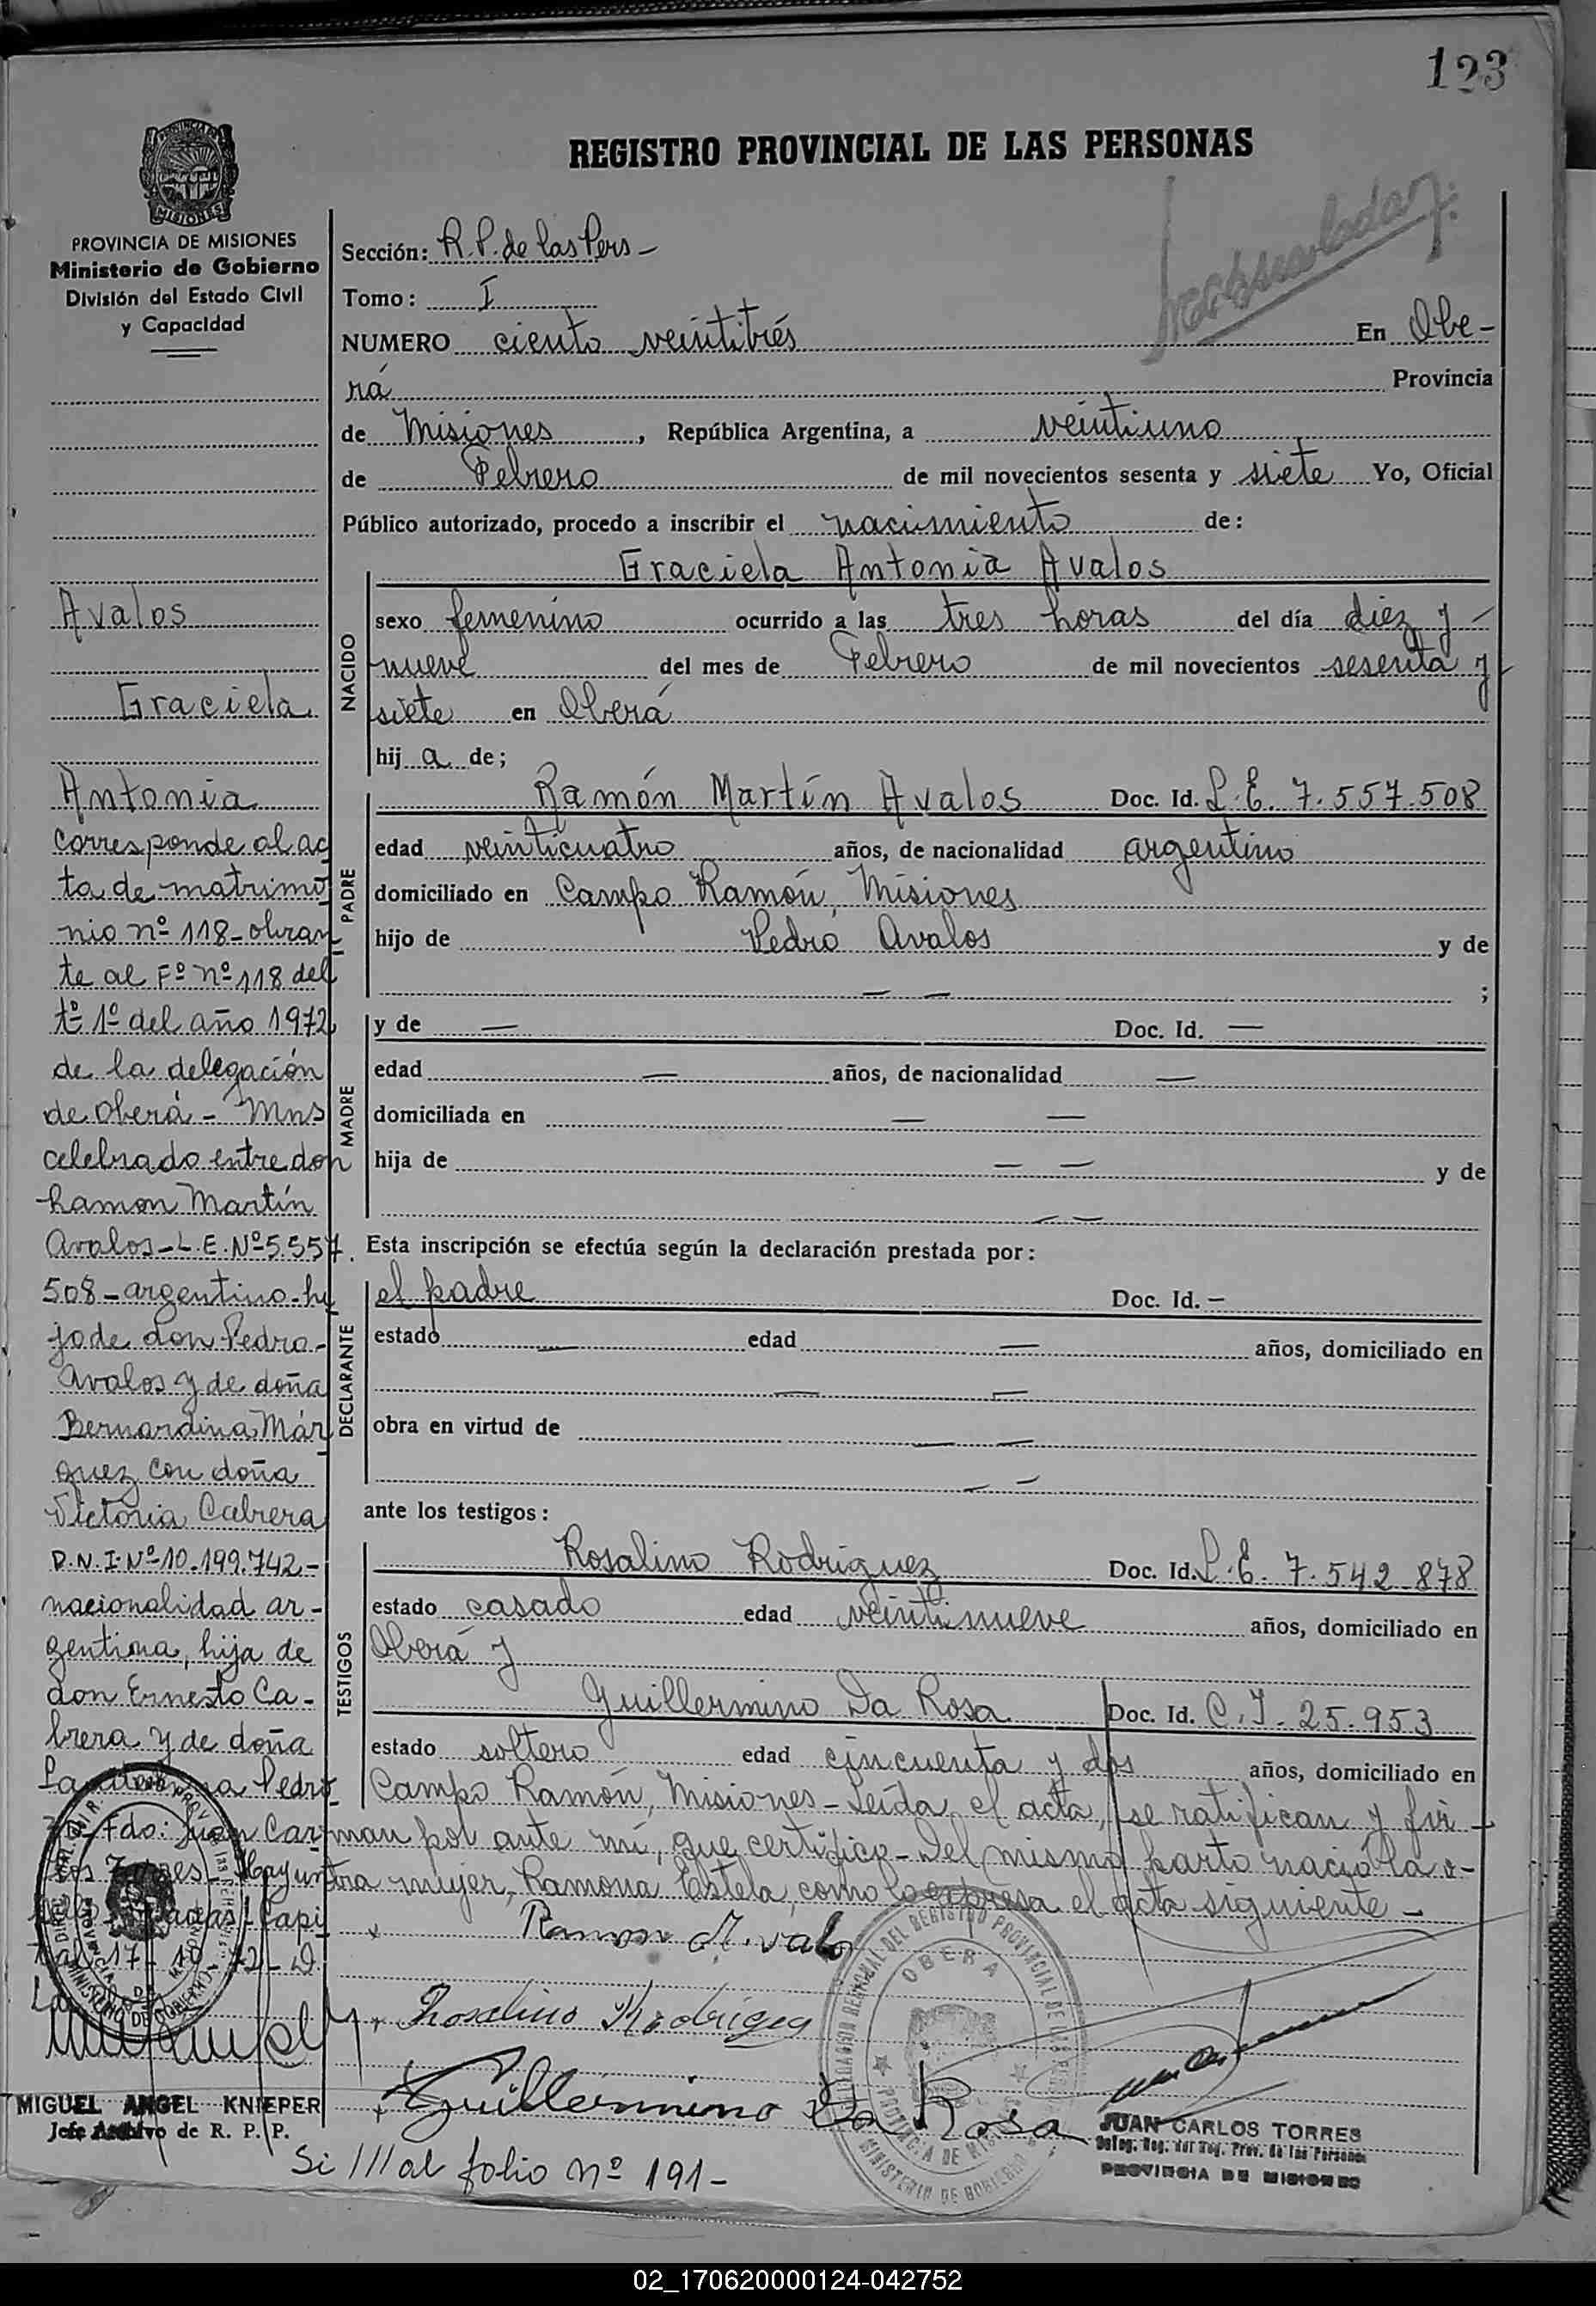 123
REGISTRO PROVINCIAL DE LAS PERSONAS
MISIONES
PROVINCIA DE MISIONES
Ministerio de Gobierno
División del Estado Civil
y Capacidad
Sección: R.P. de las Pers -
Tomo: I
NUMERO ciento veintitrés En Obe-
rá Provincia
de Misiones, República Argentina, a veintiuno
de Febrero de mil novecientos sesenta y siete Yo, Oficial
Público autorizado, procedo a inscribir el nacimiento de:
NACIDO
Graciela Antonia Avalos
sexo femenino ocurrido a las tres horas del día diez y -
nueve del mes de Febrero de mil novecientos sesenta y
siete en Oberá
hij a de;
PADRE
Ramón Martín Avalos Doc. Id. L.E. 7.557.508
edad veinticuatro años, de nacionalidad argentino
domiciliado en Campo Ramón, Misiones
hijo de Pedro Avalos y de
— — ;
MADRE
y de — Doc. Id. —
edad — años, de nacionalidad —
domiciliada en — —
hija de — — y de
— —
Esta inscripción se efectúa según la declaración prestada por:
DECLARANTE
el padre Doc. Id. -
estado — edad — años, domiciliado en
— —
obra en virtud de — —
— —
ante los testigos:
TESTIGOS
Rosalino Rodriguez Doc. Id. L.E. 7.542.878
estado casado edad veintinueve años, domiciliado en
Oberá y
Guillermino Da Rosa Doc. Id. C.I. 25.953
estado soltero edad cincuenta y dos años, domiciliado en
Campo Ramón, Misiones - Leída el acta, se ratifican y fir-
man por ante mí, que certifico - Del mismo parto nació la o-
tra mujer, Ramona Estela, como lo expresa el acta siguiente -
Ramon M. valo
Rosalino Rodrigez
Guillermino Da Rosa
JUAN CARLOS TORRES
Deleg. Reg. del Reg. Prov. de las Personas
PROVINCIA DE MISIONES
OBERA
Avalos
Graciela
Antonia
Corresponde al ac
ta de matrimo
nio nº 118 - obran
te al Fº nº 118 del
tº 1º del año 1972
de la delegación
de Oberá - Mns
celebrado entre don
Ramon Martín
Avalos - L.E. Nº 5.557.
508 - argentino - hi
jo de don Pedro -
Avalos y de doña
Bernardina Már
quez con doña
Victoria Cabrera
D.N.I. Nº 10.199.742 -
nacionalidad ar -
gentina, hija de
don Ernesto Ca -
brera y de doña
Pedro
Fdo: Juan Car
los Torres - Hay un
Capi
tal 17 - 10 - 72 -
MIGUEL ANGEL KNIEPER
Jefe Archivo de R. P. P.
Si /// al folio nº 191 -
02_170620000124-042752